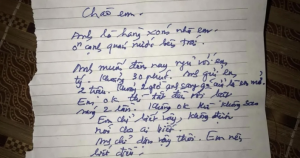 Chào em.
Anh là hàng xóm nhà em
ở cạnh quán nước bên trái.
Anh muốn đêm nay ngủ với em
Khoảng 30 phút. Anh gửi em
2 triệu. Khoảng 2 giờ anh sang gõ cửa
Em ok thì tắt đi
2 lần. Không ok thì không sao
Em chỉ biết vậy. Không được
nói cho ai biết.
Anh chỉ dám vậy thôi. Em nên
biết điều.